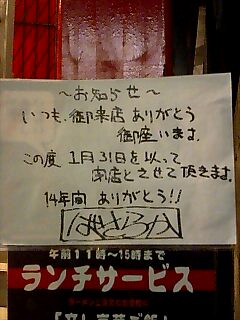 ～お知らせ～
いつも、御来店ありがとう
御座います。
この度 1月31日を以って
閉店とさせて頂きます。
14年間 ありがとう!!
午前11時～15時まで
ランチサービス